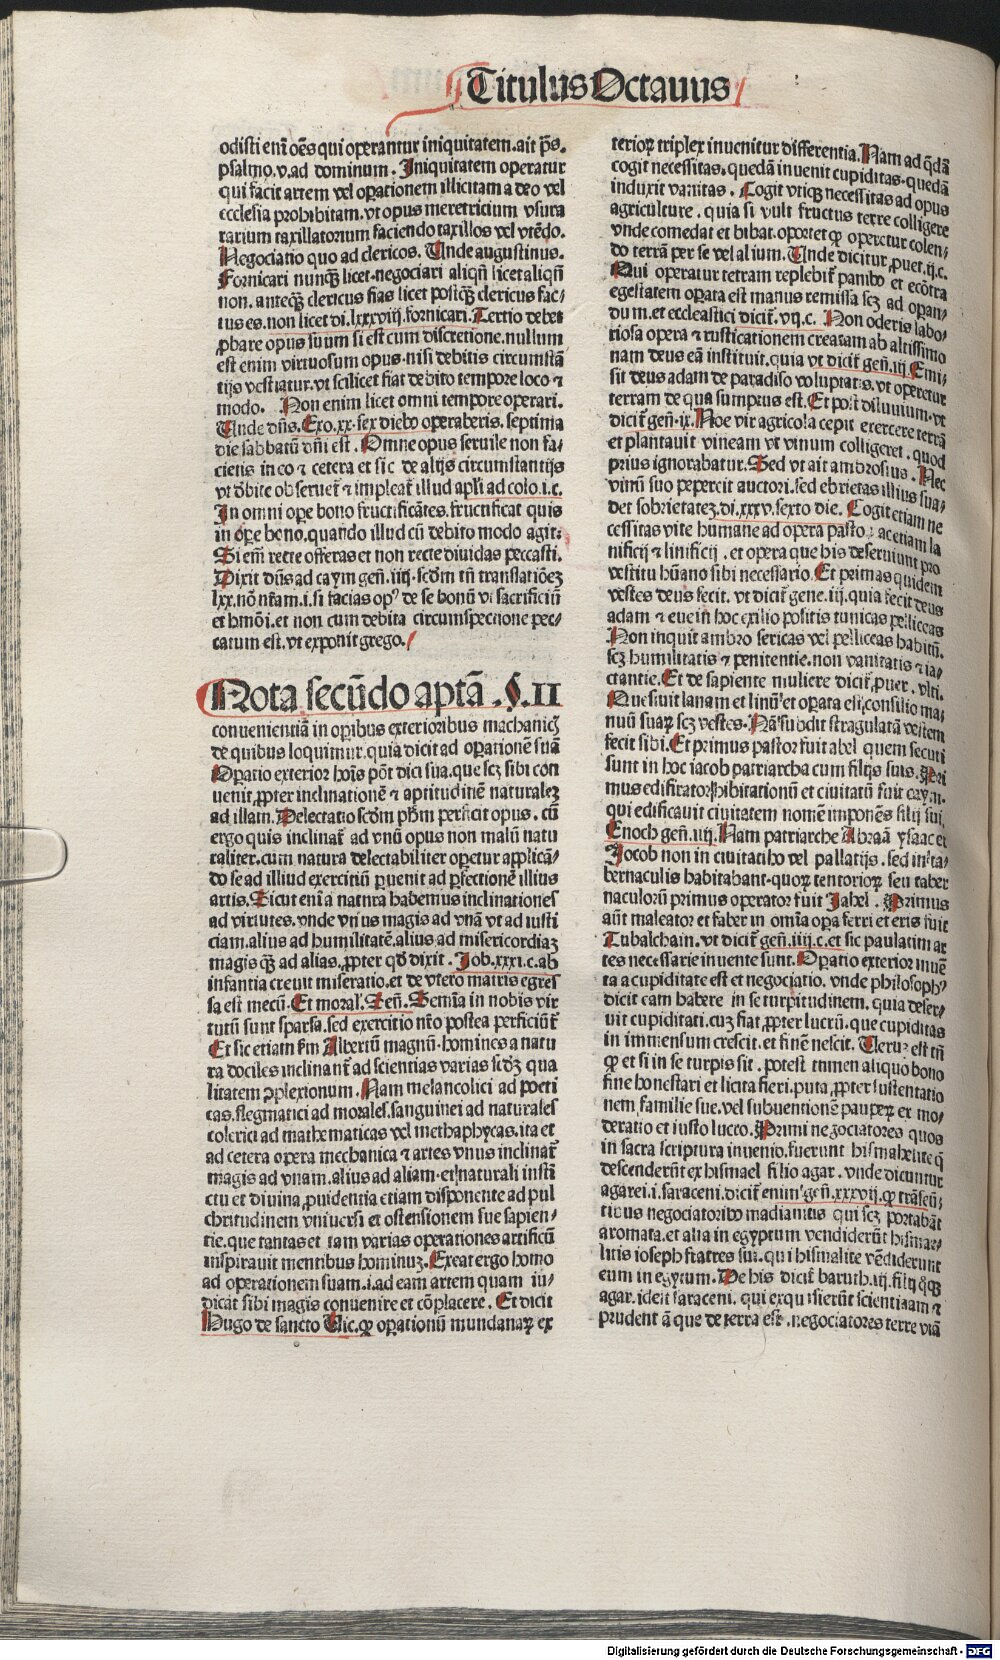 Titulus Octauus
odisti eni͂ oe͂s qui operantur iniquitatem.ait ps̄.
psalmo.v.ad dominum. Iniquitatem operatur
qui facit artem vel oꝑationem illicitam a deo vel
ecclesia prohibitam.vt opus meretricium vsura
rarium taxillatorium faciendo taxillos vel vtēdo.
Negociatio quo ad clericos. Unde augustinus.
Fornicari nunqȝ licet.negociari aliqn̄ licet aliqn̄
non.anteqȝ clericus fias licet postqȝ clericus fac⸗
tus es.non licet di.lxxxviij.fornicari.Tertio debet
ꝓbare opus suum si est cum discretione.nullum
est enim virtuosum opus.nisi debitis circumstā
tijs vestiatur.vt scilicet fiat debito tempore loco ⁊
modo. Non enim licet omni tempore operari.
Unde dn̄s.Exo.xx.sex diebꝰ operaberis.septima
die sabbatū dn̄i est. Omne opus seruile non fa⸗
cietis in eo ⁊ cetera et sic de alijs circumstantijs
vt dēbite obseruet̄ ⁊ impleat̄ illud apl̄i ad colo.i.c.
In omni oꝑe bono fructificātes.fructificat quis
in oꝑe bono.quando illud cū debito modo agit:
Si em̄ recte offeras et non recte diuidas peccasti.
Dixit dn̄s ad caym gen̄.iiij.scd̄m tn̄ translatiōeȝ
lxx.nō nr̄am.i.si facias opꝰ de se bonū vt sacrificiū
et hmōi.et non cum debita circumspectione pec⸗
catum est.vt exponit grego.
Nota secūdo aptā.§.II
conuenientiā in oꝑibus exterioribus machanicꝭ
de quibus loquimur.quia dicit ad oꝑationē suā
Oꝑatio exterior hoīs pōt dici sua.que scȝ sibi con
uenit.ꝓpter inclinationē ⁊ aptitudinē naturaleȝ
ad illam.Delectatio scd̄m ph̄m perficit opus. cū
ergo quis inclinat̄ ad vnū opus non malū natu
raliter.cum natura delectabiliter opetur applicā⸗
do se ad illiud exercitiū ꝑuenit ad ꝑfectionē illius
artis.Sicut eni͂ a natura habemus inclinationes
ad virtutes.vnde vnus magis ad vnā vt ad iusti
ciam.alius ad humilitatē.alius ad misericordiaȝ
magis qȝ ad alias.ꝓpter qd̄ dixit. Job.xxxi.c.ab
infantia creuit miseratio.et de vtero matris egres
sa est mecū.Et moral̄.Sen̄.Semīa in nobis vir
tutū sunt sparsa.sed exercitio nr̄o postea perficiūt̄
Et sic etiam scd̄m Albertū magnū.homines a natu
ra dociles inclinant̄ ad scientias varias scd̄ȝ qua
litatem ꝯplexionum. Nam melancolici ad poeti
cas.flegmatici ad morales.sanguinei ad naturales
colerici ad mathematicas vel methaphycas.ita et
ad cetera opera mechanica ⁊ artes vnus inclinat̄
magis ad vnam.alius ad aliam.et naturali insti
ctu et diuina ꝓuidentia etiam disponente ad pul
chritudinem vniuersi et ostensionem sue sapien⸗
tie.que tantas et tam varias operationes artificū
inspirauit mentibus hominuȝ.Exeat ergo homo
ad operationem suam.i.ad eam artem quam iu⸗
dicat sibi magis conuenire et cōplacere. Et dicit
Hugo de sancto Vic.qꝫ oꝑationū mundanaꝝ ex
terioꝝ triplex inuenitur differentia.Nam ad qd̄ā
cogit necessitas.quedā inuenit cupiditas.quedā
induxit vanitas. Cogit vtiqȝ necessitas ad opus
agriculture. quia si vult fructus terre colligere
vnde comedat et bibat.oportet qꝫ operetur colen⸗
do terrā per se vel alium. Unde dicitur ꝓuer.ij.c.
Qui operatur terram replebit̄ panibꝰ et ecōtra
egestatem oꝑata est manus remissa scȝ ad opan⸗
dum.et ecclesiastici dicit̄.vij.c. Non oderis labo⸗
riosa opera ⁊ rusticationem creatam ab altissimo
nam deus eā instituit.quia vt dicit̄ gen̄.iij.Emi⸗
sit deus adam de paradiso voluptatis.vt operetur
terram de qua sumptus est.Et post diluuium.vt
dicit̄ gen̄.ix.Noe vir agricola cepit exercere terrā
et plantauit vineam vt vinum colligeret. quod
prius ignorabatur.Sed vt ait ambrosius. Nec
vinū suo pepercit auctori.sed ebrietas illius sua⸗
det sobrietateȝ.di.xxxv.sexto die. Cogit etiam ne
cessitas vite humane ad opera pasto: ac etiam la
nificij ⁊ linificij .et opera que his deseruiunt pro
vestitu hūano sibi necessario.Et primas quidem
vestes deus fecit. vt dicit̄ gene.iij.quia fecit deus
adam ⁊ eue in hoc exilio positis tunicas pelliceas
Non inquit ambro sericas vel pelliceas habitū.
scȝ humilitatis ⁊ penitentie.non vanitatis ⁊ ia⸗
ctantie.Et de sapiente muliere dicit̄.ꝓuer. vlti.
Quesiuit lanam et linū et oꝑata est.consilio ma⸗
nuū suaꝝ scȝ vestes.Nā subdit stragulatā vestem
fecit sibi.Et primus pastor fuit abel quem secuti
sunt in hoc iacob patriarcha cum filijs suis.Pri
mus edificatoꝝ hibitationū et ciuitatū fuit caym.
qui edificauit ciuitatem nomē imponēs filij sui.
Enoch gen̄.iiij.Nam patriarche Abraā ysaac et
Jocob non in ciuitatibꝰ vel pallatijs.sed in ta⸗
bernaculis habitabant.quoꝝ tentorioꝝ seu taber
naculorū primus operator fuit Jabel . Primus
aūt maleator et faber in omīa opa ferri et eris fuit
Tubalchain.vt dicit̄ gen̄.iiij.c.et sic paulatim ar
tes necessarie inuente sunt.Oꝑatio exterior inuē
ta a cupiditate est et negociatio. vnde philosophꝰ
dicit eam habere in se turpitudinem.quia deser⸗
uit cupiditati.cuȝ fiat ꝓpter lucrū.que cupiditas
in immensum crescit.et finē nescit. Veruȝ est tn̄
qꝫ et si in se turpis sit. potest tamen aliquo bono
fine honestari et licita fieri.puta ꝓpter sustentatio
nem familie sue.vel subuentionē pauperȝ ex mo⸗
deratio et iusto lucro.Primi negociatores quos
in sacra scriptura inuenio.fuerunt hismahelite qͥ
descenderūt ex hismael filio agar. vnde dicuntur
agarei.i.saraceni.dicit̄ enim gen̄.xxxvij.qꝫ trāseū⸗
tibus negociatoribꝰ madianitis qui scȝ portabāt
aromata.et alia in egyptum vendiderūt hismae⸗
litis ioseph fratres sui.qui hismalite vēdiderunt
eum in egytum.De his dicit̄ baruth.iij.filij qͦqȝ
agar.idest saraceni. qui exquisierūt scientiaam ⁊
prudentiā que de terra est.negociatores terre viā
Digitalisierung gefördert durch die Deutsche Forschungsgemeinschaft - DFG